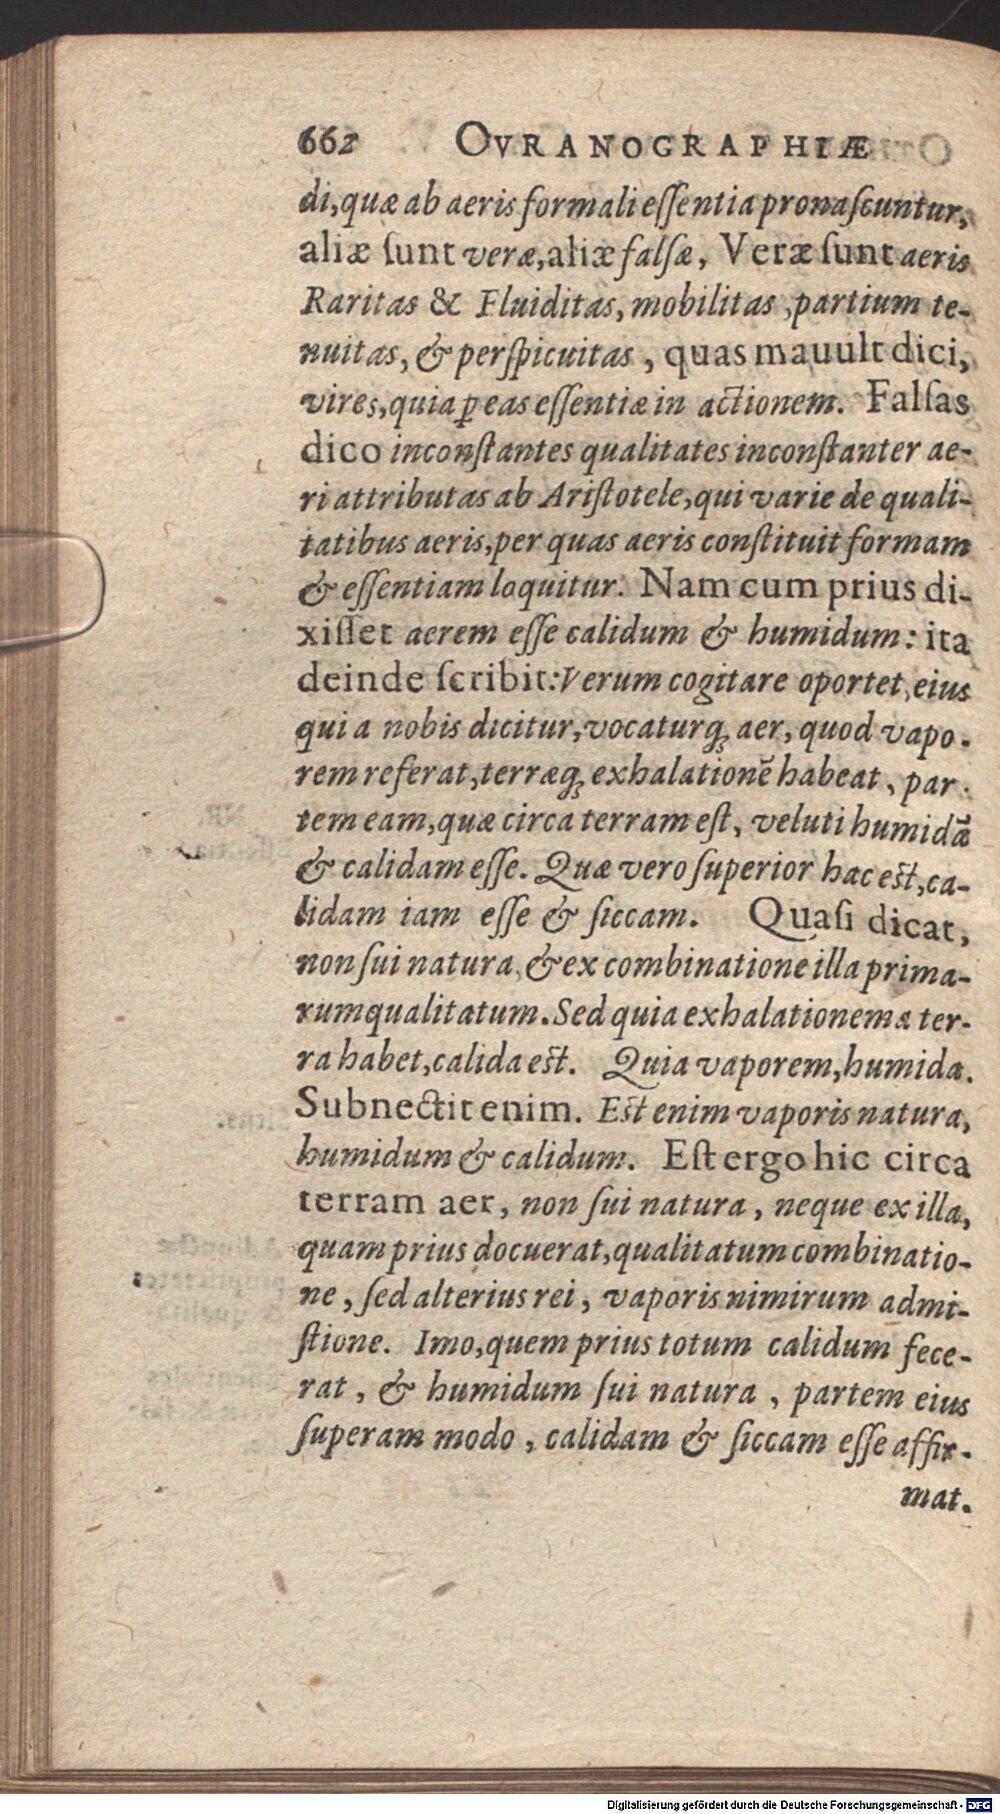 662 OVRANOGRAPHIÆ
di, quæ ab aeris formali eſſentia pronaſcuntur,
aliæ ſunt veræ, aliæ falſæ, Veræ ſunt aeris
Raritas & Fluiditas, mobilitas, partium te-
nuitas, & perſpicuitas, quas mauult dici,
vires, quia ꝑ eas eſſentiæ in actionem. Falſas
dico inconſtantes qualitates inconſtanter ae-
ri attributas ab Ariſtotele, qui varie de quali-
tatibus aeris, per quas aeris conſtituit formam
& eſſentiam loquitur. Nam cum prius di-
xiſſet aerem eſſe calidum & humidum: ita
deinde ſcribit: Verum cogitare oportet, eius
qui a nobis dicitur, vocaturq́ꝫ aer, quod vapo-
rem referat, terræq́ꝫ exhalationē habeat, par-
tem eam, quæ circa terram eſt, veluti humidā
& calidam eſſe. Quæ vero ſuperior hac eſt, ca-
lidam iam eſſe & ſiccam. Quaſi dicat,
non ſui natura, & ex combinatione illa prima-
rum qualitatum. Sed quia exhalationem a ter-
ra habet, calida eſt. Quia vaporem, humida.
Subnectit enim. Eſt enim vaporis natura,
humidum & calidum. Eſt ergo hic circa
terram aer, non ſui natura, neque ex illa,
quam prius docuerat, qualitatum combinatio-
ne, ſed alterius rei, vaporis nimirum admi-
ſtione. Imo, quem prius totum calidum fece-
rat, & humidum ſui natura, partem eius
ſuperam modo, calidam & ſiccam eſſe affir-
mat.
Digitalisierung gefördert durch die Deutsche Forschungsgemeinschaft - DFG